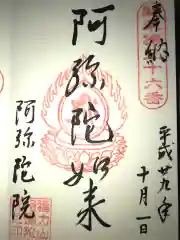 奉納
十六番
平成廿九年
十月一日
阿弥陀如来
阿弥陀院